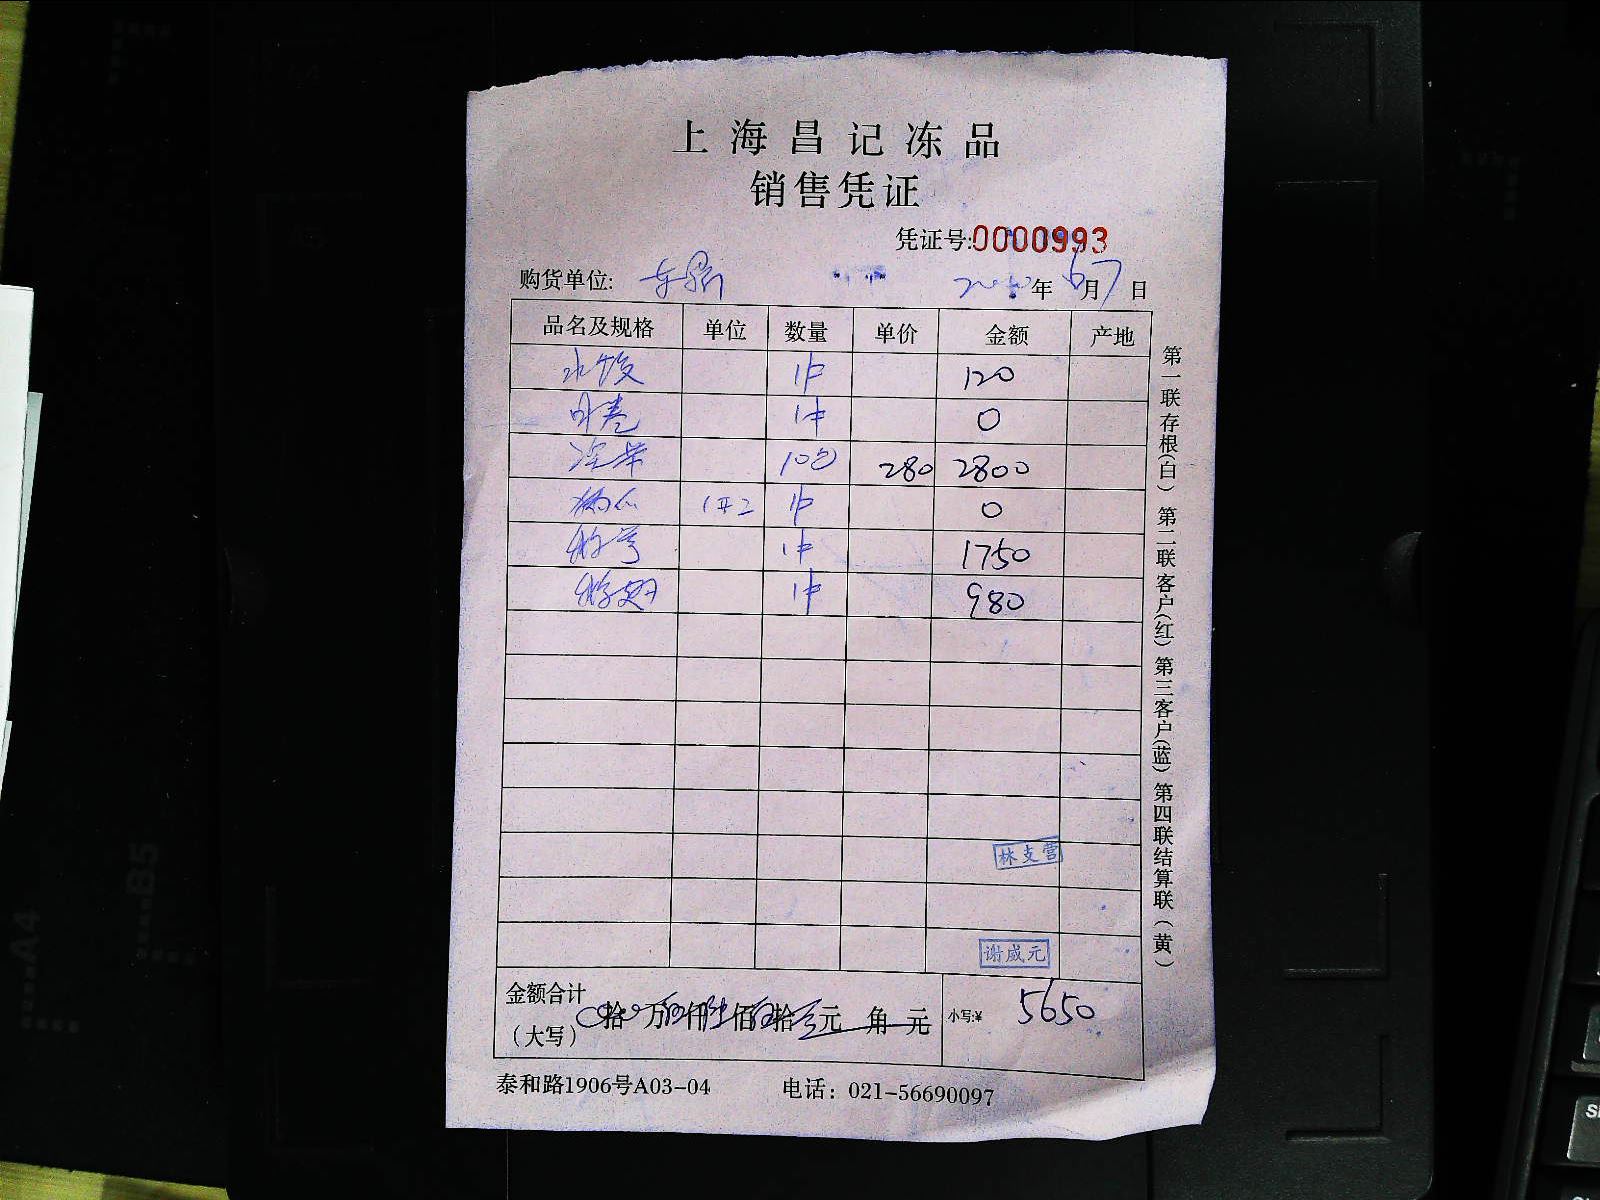 上海昌记冻品
销售凭证
凭证号:0000993
购货单位: 年6月7日
品名及规格 单位 数量 单价 金额 产地
水饺 1件 120
1件 0
10包 280 2800
1件 0
1件 1750
1件 980
林支营
谢威元
金额合计
(大写) 拾 万 仟 佰 拾 元 角 元 小写:¥ 5650
泰和路1906号A03-04 电话: 021-56690097
第一联存根(白) 第二联客户(红) 第三客户(蓝) 第四联结算联(黄)
A4
B5